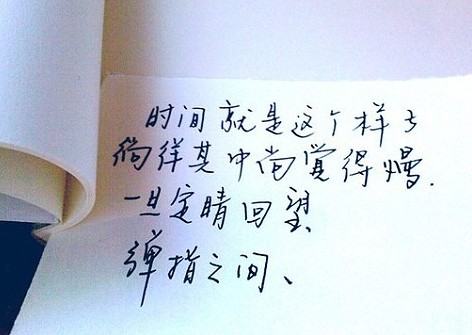 时间就是这个样子
徜徉其中尚覺得慢.
一旦定睛回望
弹指之间、